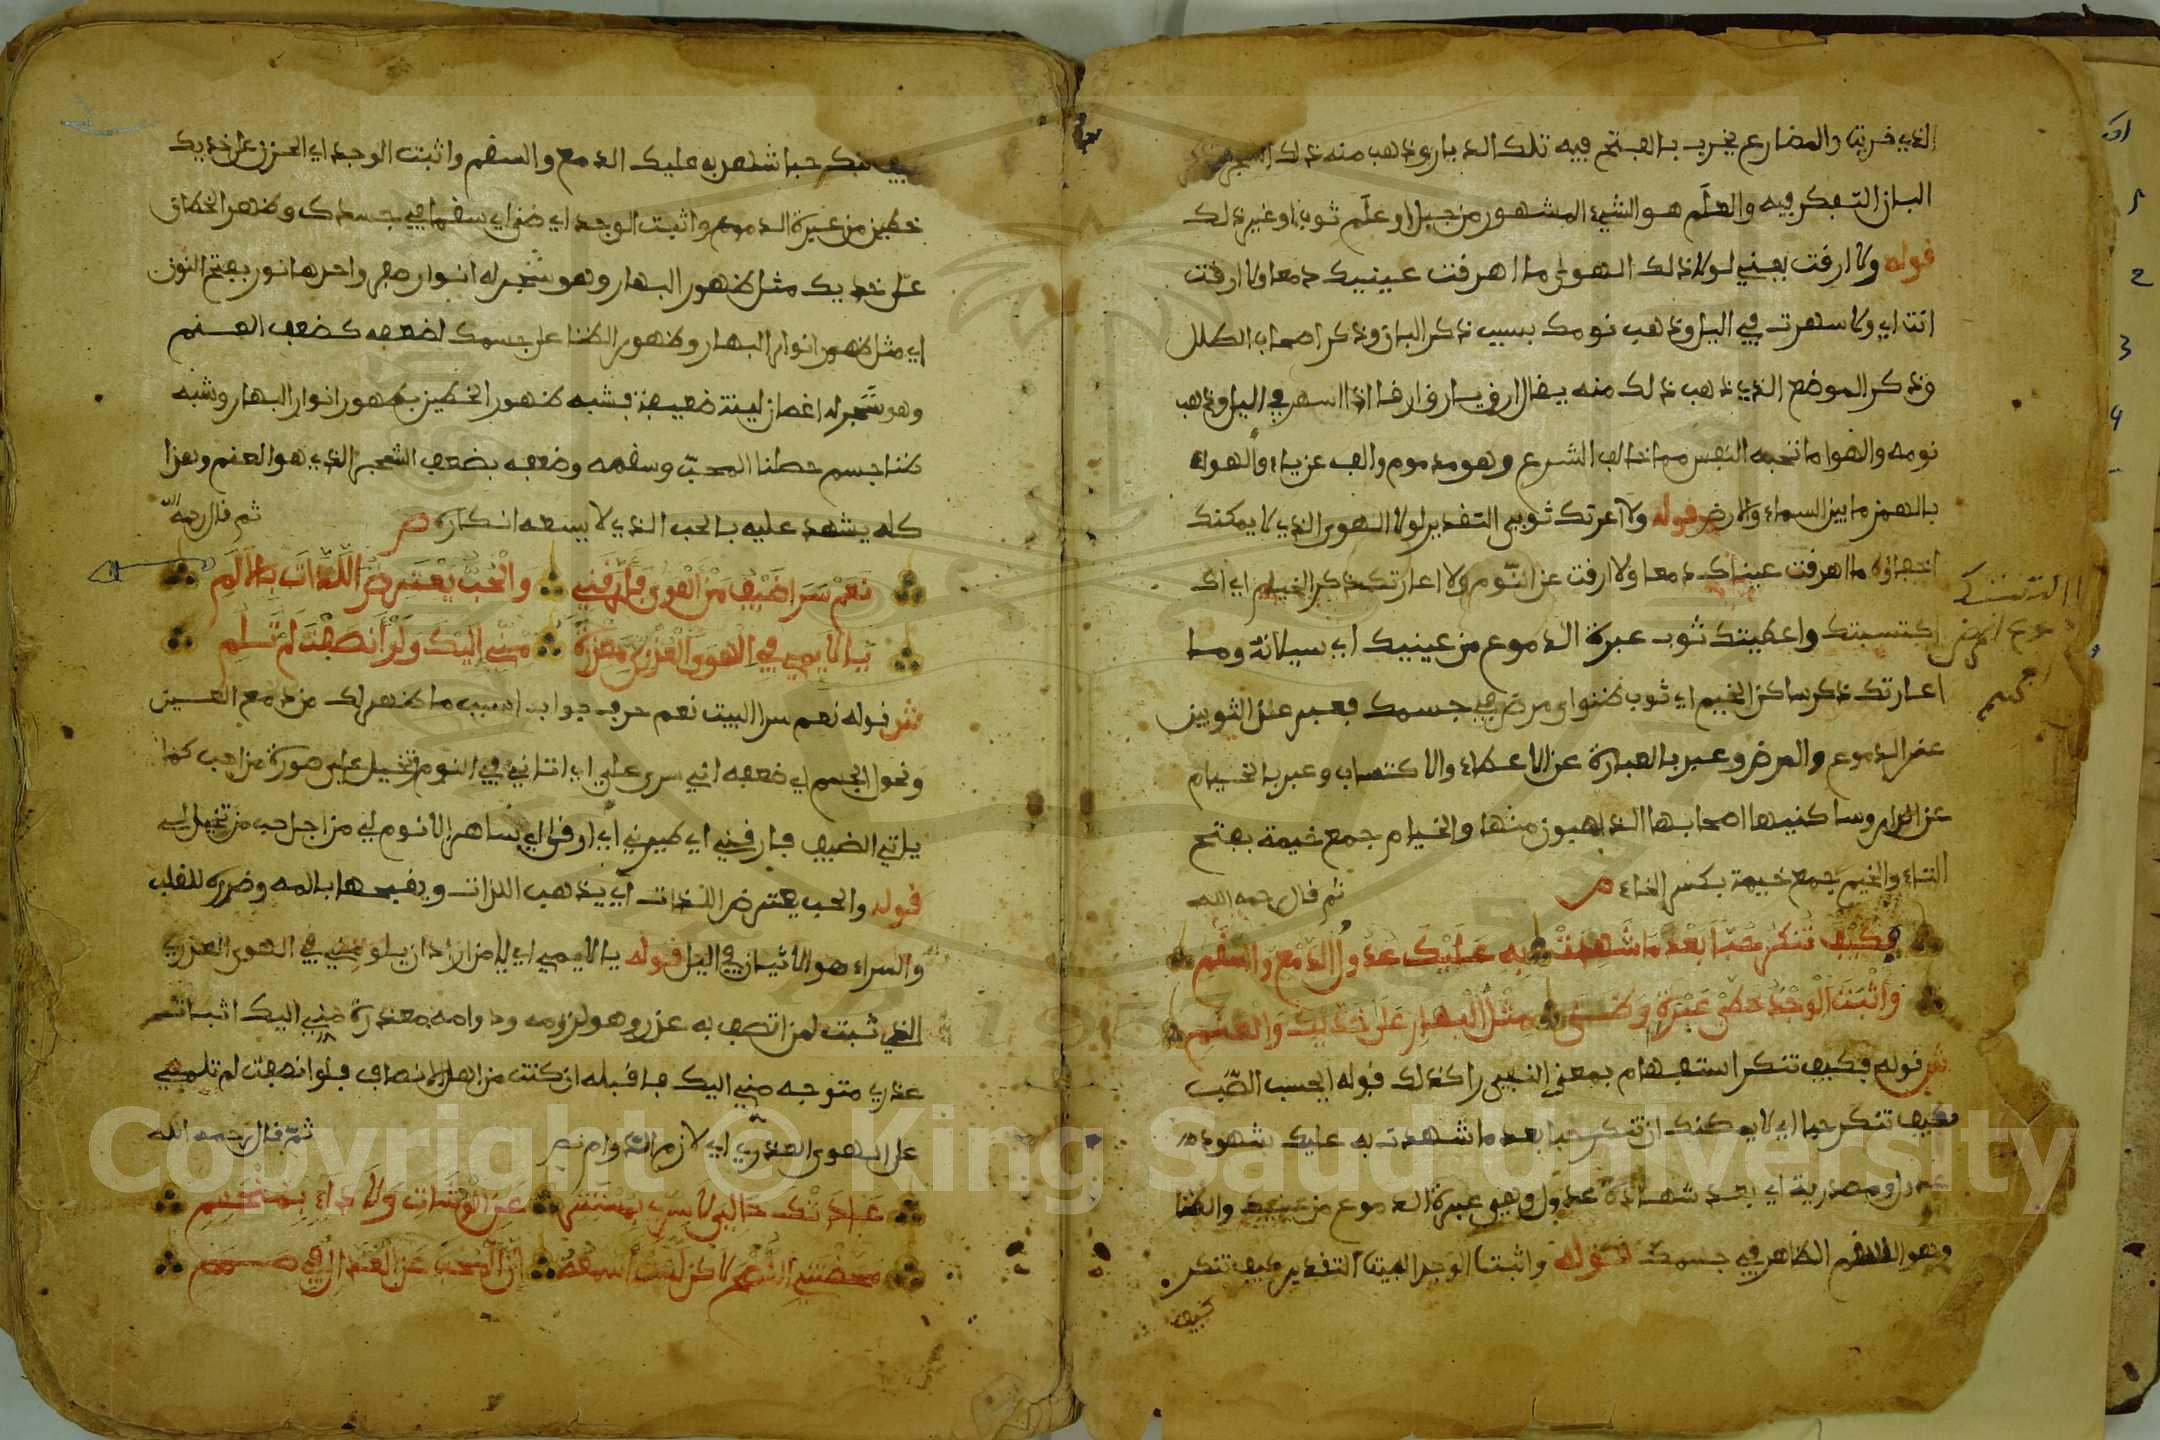 الذي خربت والمضارع يخرب بالفتح فيه تلك الديار وذهب منه ذلك الشجر
البان التفكر فيه والعلَم هو الشيء المشهور من جبل او علَم ثوب او غير ذلك
قوله ولا ارقت يعني لولا ذلك الهوى ما اهرقت عينيك دمعا ولا ارقت
انت اي ولا سهرت في اليل وذهب نومك بسبب ذكر البان وذكر اصحاب الطلل
وذكر الموضع الذي ذهب ذلك منه يقال ارق يارق ارقا اذا اسهر في اليل وذهب
نومه والهوا ما تحبه النفس مما خالف الشرع وهو مذموم والهواء
بالهمز ما بين السماء والارض قوله ولا اعرتك ثوبي التقدير لولا الهوى الذي لا يمكنك
ما اهرقت عيناك دمعا ولا ارقت عن النوم ولا اعارتك ذكر الخيام اي
اكتسبتك واعطيتك ثوب عبرة الدموع من عينيك اي سيلانه وما
اعارتك ذكر ساكن الخيم اي ثوب ضنى اي مرض في جسمك فعبر عن الثوبين
عن الدموع والمرض وعبر بالعبارة عن الاعطاء والاكتساب وعبر بالخيام
عن الديار وساكنيها اصحابها الذاهبون منها والخيام جمع خيمة بفتح
الخاء والخيم جمع خيمة بكسر الخاء ص ثم قال رحمه الله
فكيف تنكر حبا بعد ما شهدت به عليك عدول الدمع والسقم
واثبت الوجد خطي عبرة وضنى مثل البهار على خديك والعنم
ش قوله فكيف تنكر استفهام بمعنى النفي وكذلك قوله ايحسب الصّب
فكيف تنكر حبا اي لا يمكنك ان تنكر حبا بعد ما شهدت به عليك شهوده
ومصدرية اي بعد شهادة عدول وهي عبرة الدموع من عينيك والضنا
وهو السقم الظاهر في جسمك قوله واثبت الوجد البيت التقدير كيف تنكر
كيف
كيف تنكر حبا شهد به عليك الدمع والسقم واثبت الوجد اي الحزن على خديك
خطين من عبرة الدموع واثبت الوجد اي ضنى اي سقما في جسدك وظهر الخطان
على خديك مثل ظهور البهار وهو شجر له انوار صفر واحدها نور بفتح النون
اي مثل ظهور انوار البهار وظهور الضنا على جسمك لضعفه كضعف العنم
وهو شجر له اغصان لينة ضعيفة فشبه ظهور الخطين بظهور انوار البهار وشبه
ضنا جسم المحبّ وسقمه وضعفه بضعف الشجر الذي هو العنم وهذا
كله يشهد عليه بالحب الذي لا يسعه انكاره ص ثم قال رحمه الله
نعم سرا طيف من اهوى فارقني والحب يعترض اللذات بالالم
يا لايمي في الهوى العذري معذرة مني اليك ولو انصفت لم تلم
ش قوله نعم سرا البيت نعم حرف جواب لسبب ما ظهر لك من دمع العين
ونحول الجسم اي ضعفه اني سرى علي اي اتاني في النوم وتخيل على صورة من احب كما
ياتي الضيف فارقني اي صيرني اي ارقا اي ساهرا لا نوم لي من اجل حب من تخيل لي
قوله والحب يعترض اللذات اي يذهب اللذات ويقبحها بالمه وضرره للقلب
والسراء هو الاتيان في اليل قوله يا لايمي اي يا من اراد ان يلومني في الهوى العذري
الذي ثبت لمن اتصف به عذر وهو لزومه ودوامه معذرة مني اليك اثبات
عذري متوجه مني اليك فاقبله ان كنت من اهل الانصاف فلو انصفت لم تلمني
على الهوى العذري اي لازم الدوام ص ثم قال رحمه الله
عدتك حالي لا سري بمستتر عن الوشات ولا داءي بمنحسم
محضتني النصح لكن لست اسمعه ان المحب عن العذال في صمم
Copyright © King Saud University